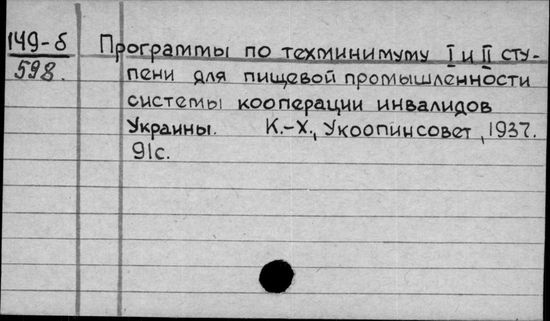 149-б
598.
Программы по техминимуму I и II сту-
пени для пищевой промышленности
системы кооперации инвалидов
Украины. К.-Х., Укоопинсовет, 1937.
91с.